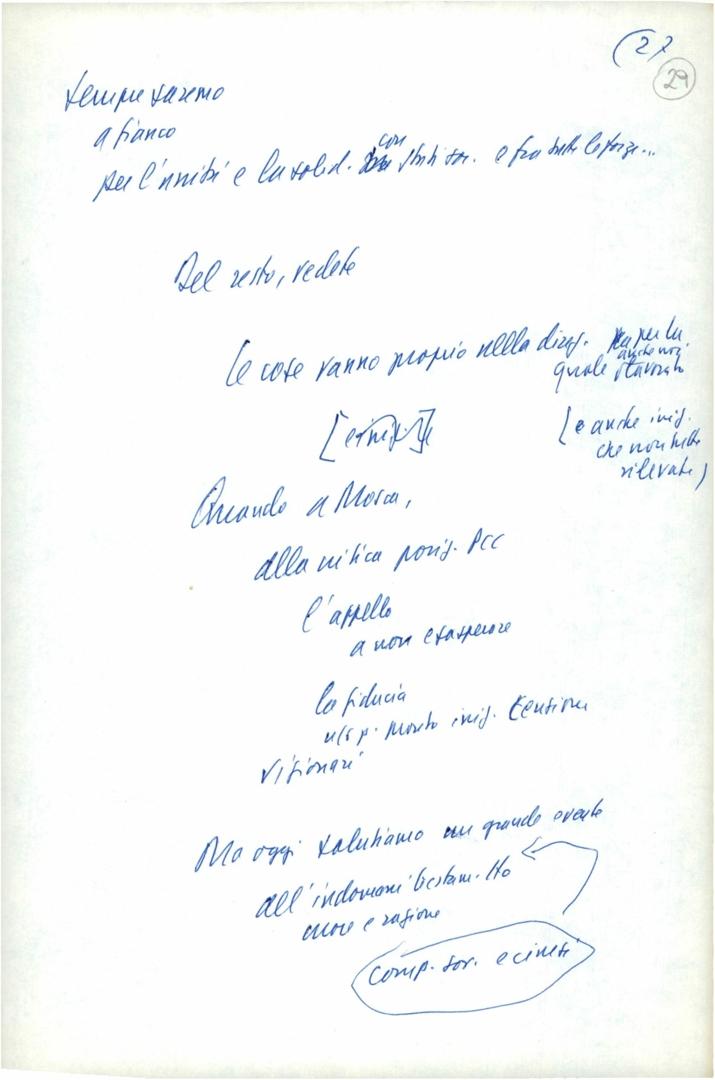 (27
29
sempre saremo
a fianco
per l'unità e la solid. con Stati soc. e fra tutte le forze...
Del resto, vedete
le cose vanno proprio nella direz. per la
quale anche noi
lavorato
[e anche
che non
rilevate)
Quando a Mosca,
alla critica posiz. PCC
l'appello
a non esasperare
la fiducia
tensione
visionari
Ma oggi salutiamo un grande evento
all'indomani
cuore e ragione
comp. sov. e cinesi